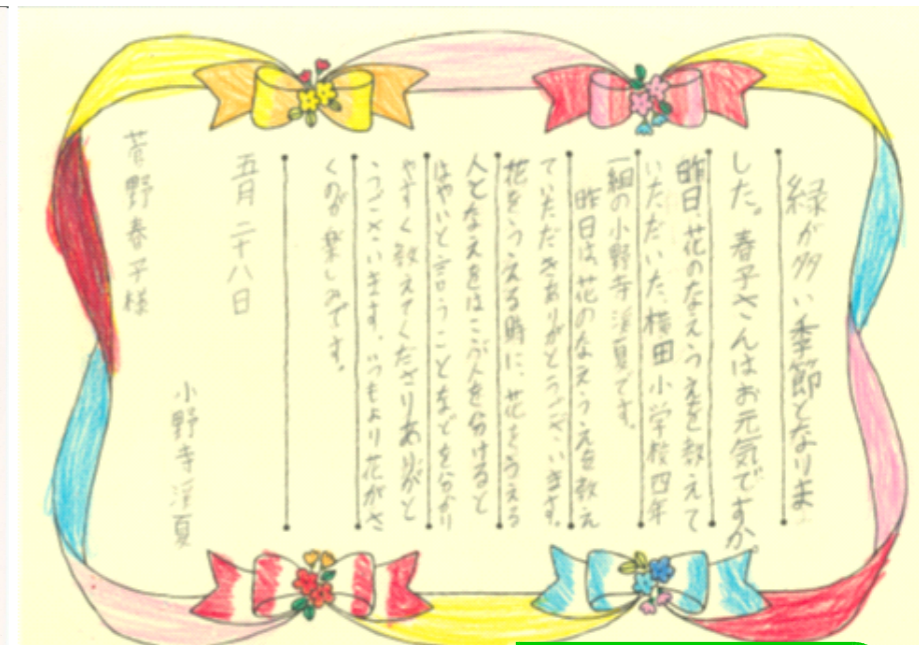 緑が多い季節となりま
した。春子さんはお元気ですか。
昨日、花のなえうえを教えて
いただいた、横田小学校四年
一組の小野寺渓夏です。
昨日は花のなえうえを教え
ていただきありがとうございます。
花をうえる時に、花をうえる
人となえをはこぶ人を分けると
はやいと言うことなどを分かり
やすく教えてくださりありがと
うございます。いつもより花がさ
くのが楽しみです。
五月二十八日
小野寺渓夏
菅野春子様